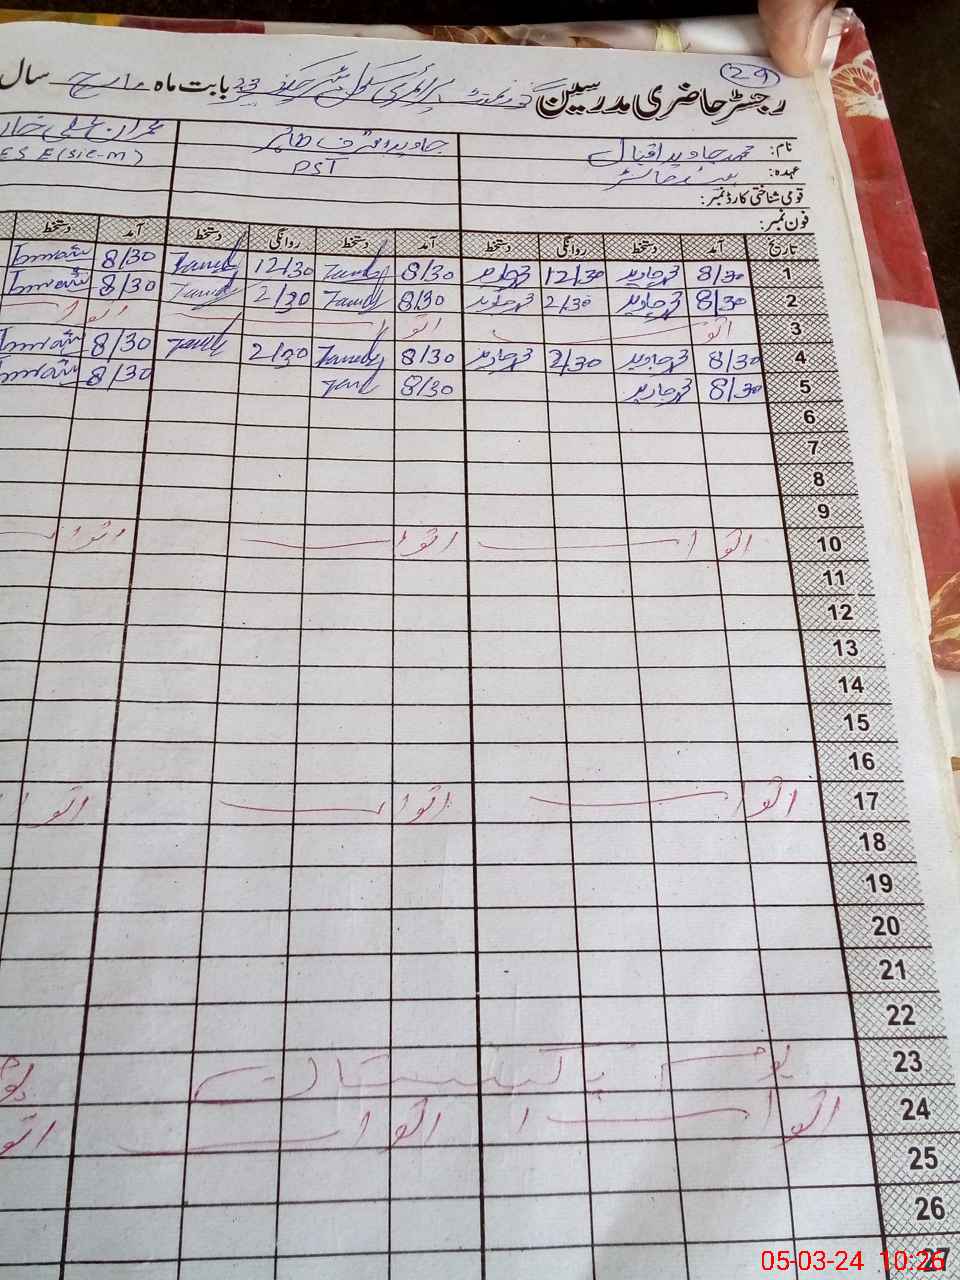 29
رجسٹر حاضری مدرسین گورنمنٹ پرائمری سکول بابت ماہ مارچ سال
نام: محمد جاوید اقبال جاوید اشرف طاہر عمران علی
عہدہ: PST ESE(sic-m)
قومی شناختی کارڈ نمبر:
فون نمبر:
تاریخ آمد دستخط روانگی دستخط آمد دستخط روانگی دستخط آمد دستخط
1 8/30 محمد جاوید 12/30 محمد جاوید 8/30 Javed 12/30 Javed 8/30 Imran
2 8/30 محمد جاوید 2/30 محمد جاوید 8/30 Javed 2/30 Javed 8/30 Imran
3 اتوار اتوار اتوار
4 8/30 محمد جاوید 2/30 محمد جاوید 8/30 Javed 2/30 Javed 8/30 Imran
5 8/30 محمد جاوید 8/30 Javed 8/30 Imran
6
7
8
9
10 اتوار اتوار اتوار
11
12
13
14
15
16
17 اتوار اتوار اتوار
18
19
20
21
22
23 یوم پاکستان یوم
24 اتوار اتوار اتوار
25
26
27
05-03-24 10:26